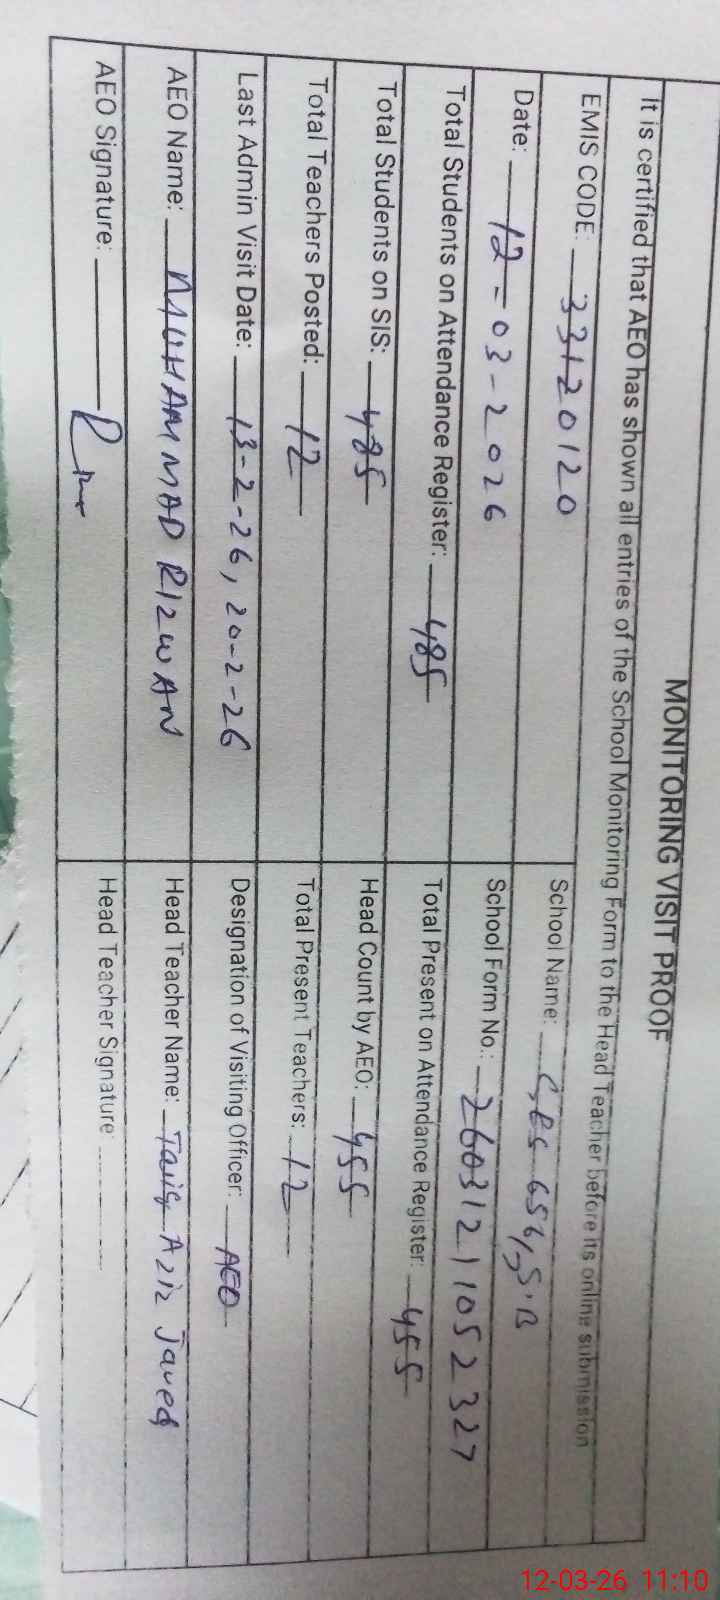 MONITORING VISIT PROOF
It is certified that AEO has shown all entries of the School Monitoring Form to the Head Teacher before its online submission
EMIS CODE: 33120120
School Name: GES 656/5
Date: 12-03-2026
School Form No.: 26031211052327
Total Students on Attendance Register: 485
Total Present on Attendance Register: 455
Total Students on SIS: 485
Head Count by AEO: 455
Total Teachers Posted: 12
Total Present Teachers: 12
Last Admin Visit Date: 13-2-26, 20-2-26
Designation of Visiting Officer: AEO
AEO Name: MUHAMMAD RIZWAN
Head Teacher Name: Tariq Aziz Javed
AEO Signature:
Head Teacher Signature:
12-03-26 11:10